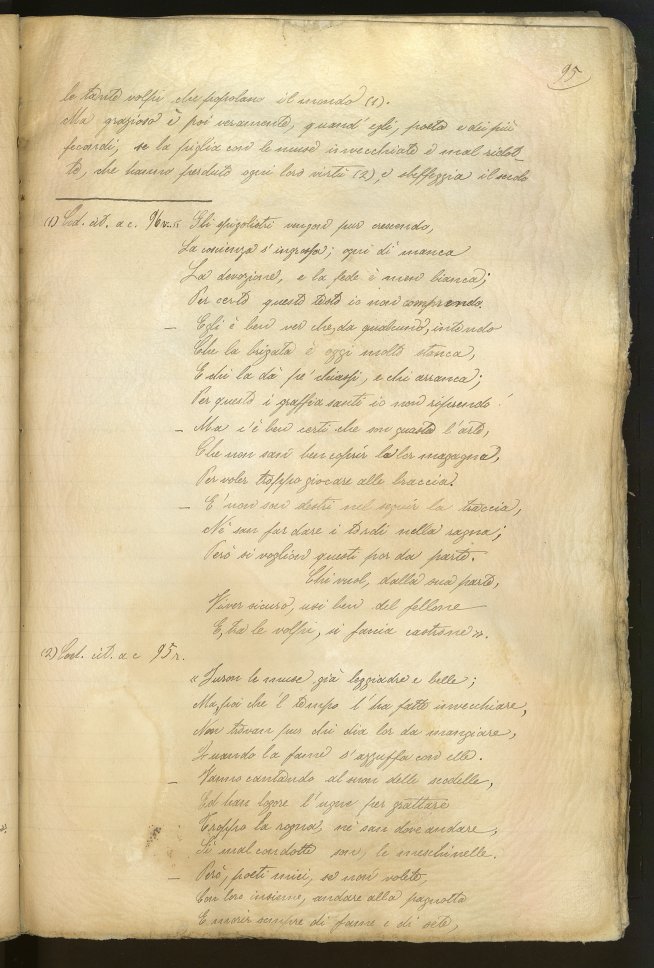 95
le tante volpi che popolano il mondo (1).
Ma grazioso è poi veramente, quand' egli, poeta e dei più
fecondi, se la piglia con le muse invecchiate e mal ridot-
te, che hanno perduto ogni loro virtù (2), e beffeggia il
(1) Cod. cit. a c. 96 Gli spigolistri vengon pur crescendo,
La coscienza s' ingrossa; ogni dì manca
La devozione, e la fede è men bianca;
Per certo questo testo io non comprendo.
— Egli è ben ver che, da qualcuno, intendo
Che la brigata è oggi molto stanca,
E chi la dà pe' chiassi, e chi arranca;
Per questo i graffiasanti io non riprendo!
— Ma i' è ben certi che son guasto l'arte,
Che non san ben coprir la lor magagna,
Per voler troppo giocare alle braccia.
— E' non son destri nel seguir la traccia,
Nè san far dare i tordi nella ragna;
Però si voglion questi por da parte.
Chi vuol, dalla sua parte,
Viver sicuro, usi ben del fellone
E, tra le volpi, si faccia castrone ».
(2) Cod. cit. a c 95 r.
« Furon le muse già leggiadre e belle;
Ma, poi che 'l tempo l' ha fatte invecchiare,
Non trovan pur chi dia lor da mangiare,
Quando la fame s' azzuffa con elle.
— Vanno cantando al suon delle scodelle,
Ed han logore l' ugne per grattare
Troppo la rogna, nè san dove andare,
Sì mal condotte son, le meschinelle.
— Però, poeti miei, se non volete,
Con loro insieme, andare alla pagnotta
E morir sempre di fame e di sete,